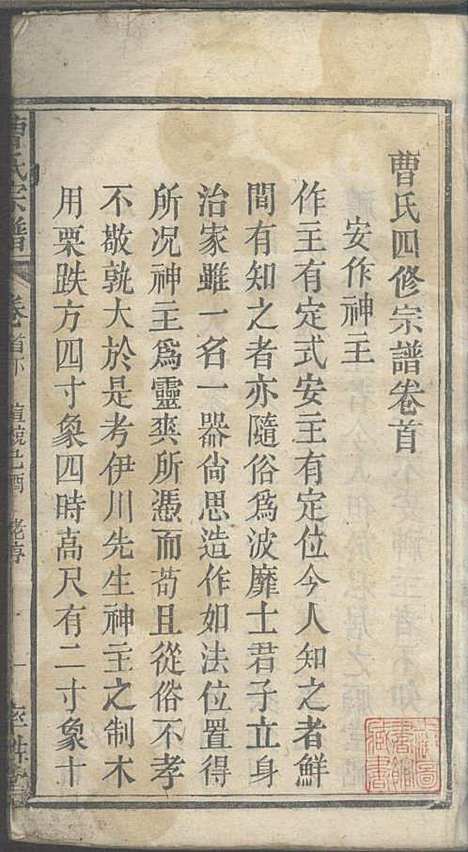 曹氏四修宗譜卷首
安作神主
作主有定式安主有定位今人知之者鮮
間有知之者亦隨俗爲波靡士君子立身
治家雖一名一器尙思造作如法位置得
所況神主爲靈爽所憑而苟且從俗不孝
不敬孰大於是考伊川先生神主之制木
用栗趺方四寸象四時高尺有二寸象十
曹氏宗譜
卷首
道光己酉